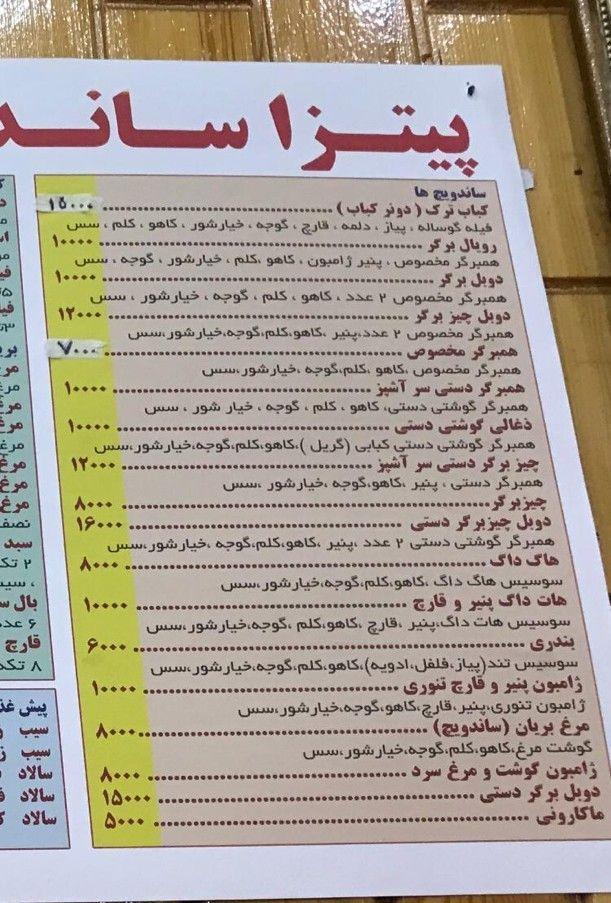 پیتزا ساند
ساندویچ ها
کباب ترک ( دونر کباب ) ۱۵۰۰۰
فیله گوساله ، پیاز ، دلمه ، قارچ ، گوجه ، خیارشور ، کاهو ، کلم ، سس
رویال برگر ۱۰۰۰۰
همبرگر مخصوص ، پنیر ژامبون ، کاهو ،کلم ، خیارشور ، گوجه ، سس
دوبل برگر ۱۰۰۰۰
همبرگر مخصوص ۲ عدد ، کاهو ، کلم ، گوجه ، خیارشور ، سس
دوبل چیز برگر ۱۲۰۰۰
همبرگر مخصوص ۲ عدد،پنیر ،کاهو،کلم،گوجه،خیارشور،سس
همبرگر مخصوص ۷۰۰۰
همبرگر مخصوص ، کاهو ،کلم،گوجه ،خیارشور،سس
همبرگر دستی سر آشپز ۱۰۰۰۰
همبرگر گوشتی دستی، کاهو ، کلم ، گوجه ، خیار شور ، سس
ذغالی گوشتی دستی ۱۰۰۰۰
همبرگر گوشتی دستی کبابی (گریل )،کاهو،کلم،گوجه،خیارشور،سس
چیز برگر دستی سر آشپز ۱۲۰۰۰
همبرگر دستی ، پنیر ،کاهو،گوجه ،خیارشور ،سس
چیزبرگر ۸۰۰۰
دوبل چیزبرگر دستی ۱۶۰۰۰
همبرگر گوشتی دستی ۲ عدد ،پنیر ،کاهو،کلم،گوجه ،خیارشور،سس
هاگ داگ ۸۰۰۰
سوسیس هاگ داگ ،کاهو،کلم،گوجه،خیارشور،سس
هات داگ پنیر و قارچ ۱۰۰۰۰
سوسیس هات داگ،پنیر ،قارچ ،کاهو،کلم ،گوجه،خیارشور،سس
بندری ۶۰۰۰
سوسیس تند(پیاز،فلفل،ادویه)،کاهو،کلم،گوجه،خیارشور،سس
ژامبون پنیر و قارچ تنوری ۱۰۰۰۰
ژامبون تنوری،پنیر،قارچ،کاهو،گوجه،خیارشور،سس
مرغ بریان (ساندویچ) ۸۰۰۰
گوشت مرغ،کاهو،کلم،گوجه،خیارشور،سس
ژامبون گوشت و مرغ سرد ۸۰۰۰
دوبل برگر دستی ۱۵۰۰۰
ماکارونی ۵۰۰۰
مرغ
مرغ
نصف
سبد
۲ تک
، سیب
بال س
۶ عدد
قارچ
۸ تکه
پیش غذ
سیب و
سیب ز
سالاد
سالاد ف
سالاد ک